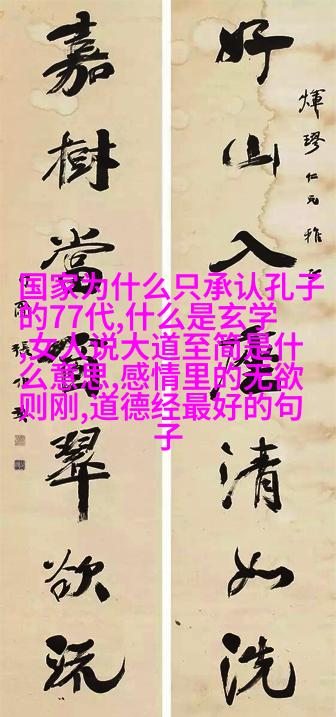 好山入座清如洗
嘉樹當窗翠欲流
国家为什么只承认孔子
的77代,什么是玄学
,女人说大道至简是什
么意思,感情里的无欲
则刚,道德经最好的句
子